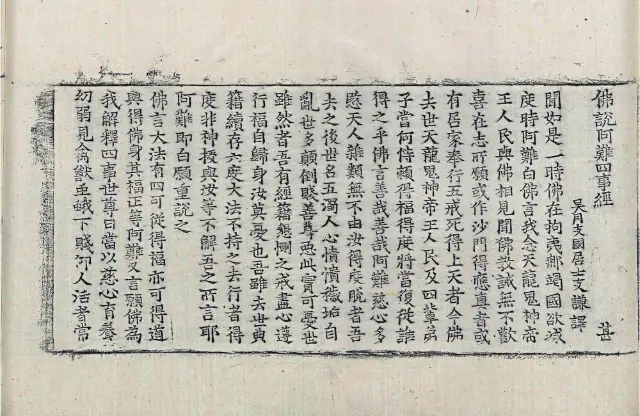 佛說阿難四事經
吳月支國居士支謙譯 甚
聞如是一時佛在拘夷那竭國欲滅
度時阿難白佛言我念天龍鬼神帝
王人民與佛相見聞佛教誡無不歡
喜在志所願或作沙門得應真者或
有居家奉行五戒死得上天者今佛
去世天龍鬼神帝王人民及四輩弟
子當何恃賴得福得度將當復從誰
得之乎佛言善哉善哉阿難慈心多
愍天人雜類無不由汝得度脫者吾
去之後世名五濁人心憒憒穢垢自
亂世多顛倒賤善尊惡此實可憂世
雖然者吾有經籍懇惻之戒盡心遵
行福自歸身汝莫憂也吾雖去世典
籍續存六度大法不持之去行者得
度非神授與汝等不解吾之所言耶
阿難即白願重說之
佛言大法有四可從得福亦可得道
與得佛身其福正等阿難又言願佛為
我解釋四事世尊曰當以慈心育養
幼弱見禽獸虫蛾下賤仰人活者常